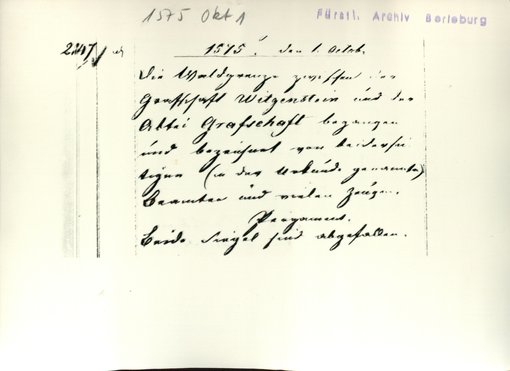 1575 Okt 1
Fürstl. Archiv Berleburg
1575. den 1. Octob.
Die Waldgrenze zwischen der
Grafschaft Witgenstein und der
Abtei Grafschaft begangen
und bezeichnet von beidersei
tigen (in der Urkunde genannten)
Beamten und vielen Zeugen.
Pergament.
Beide Siegel sind abgefallen.